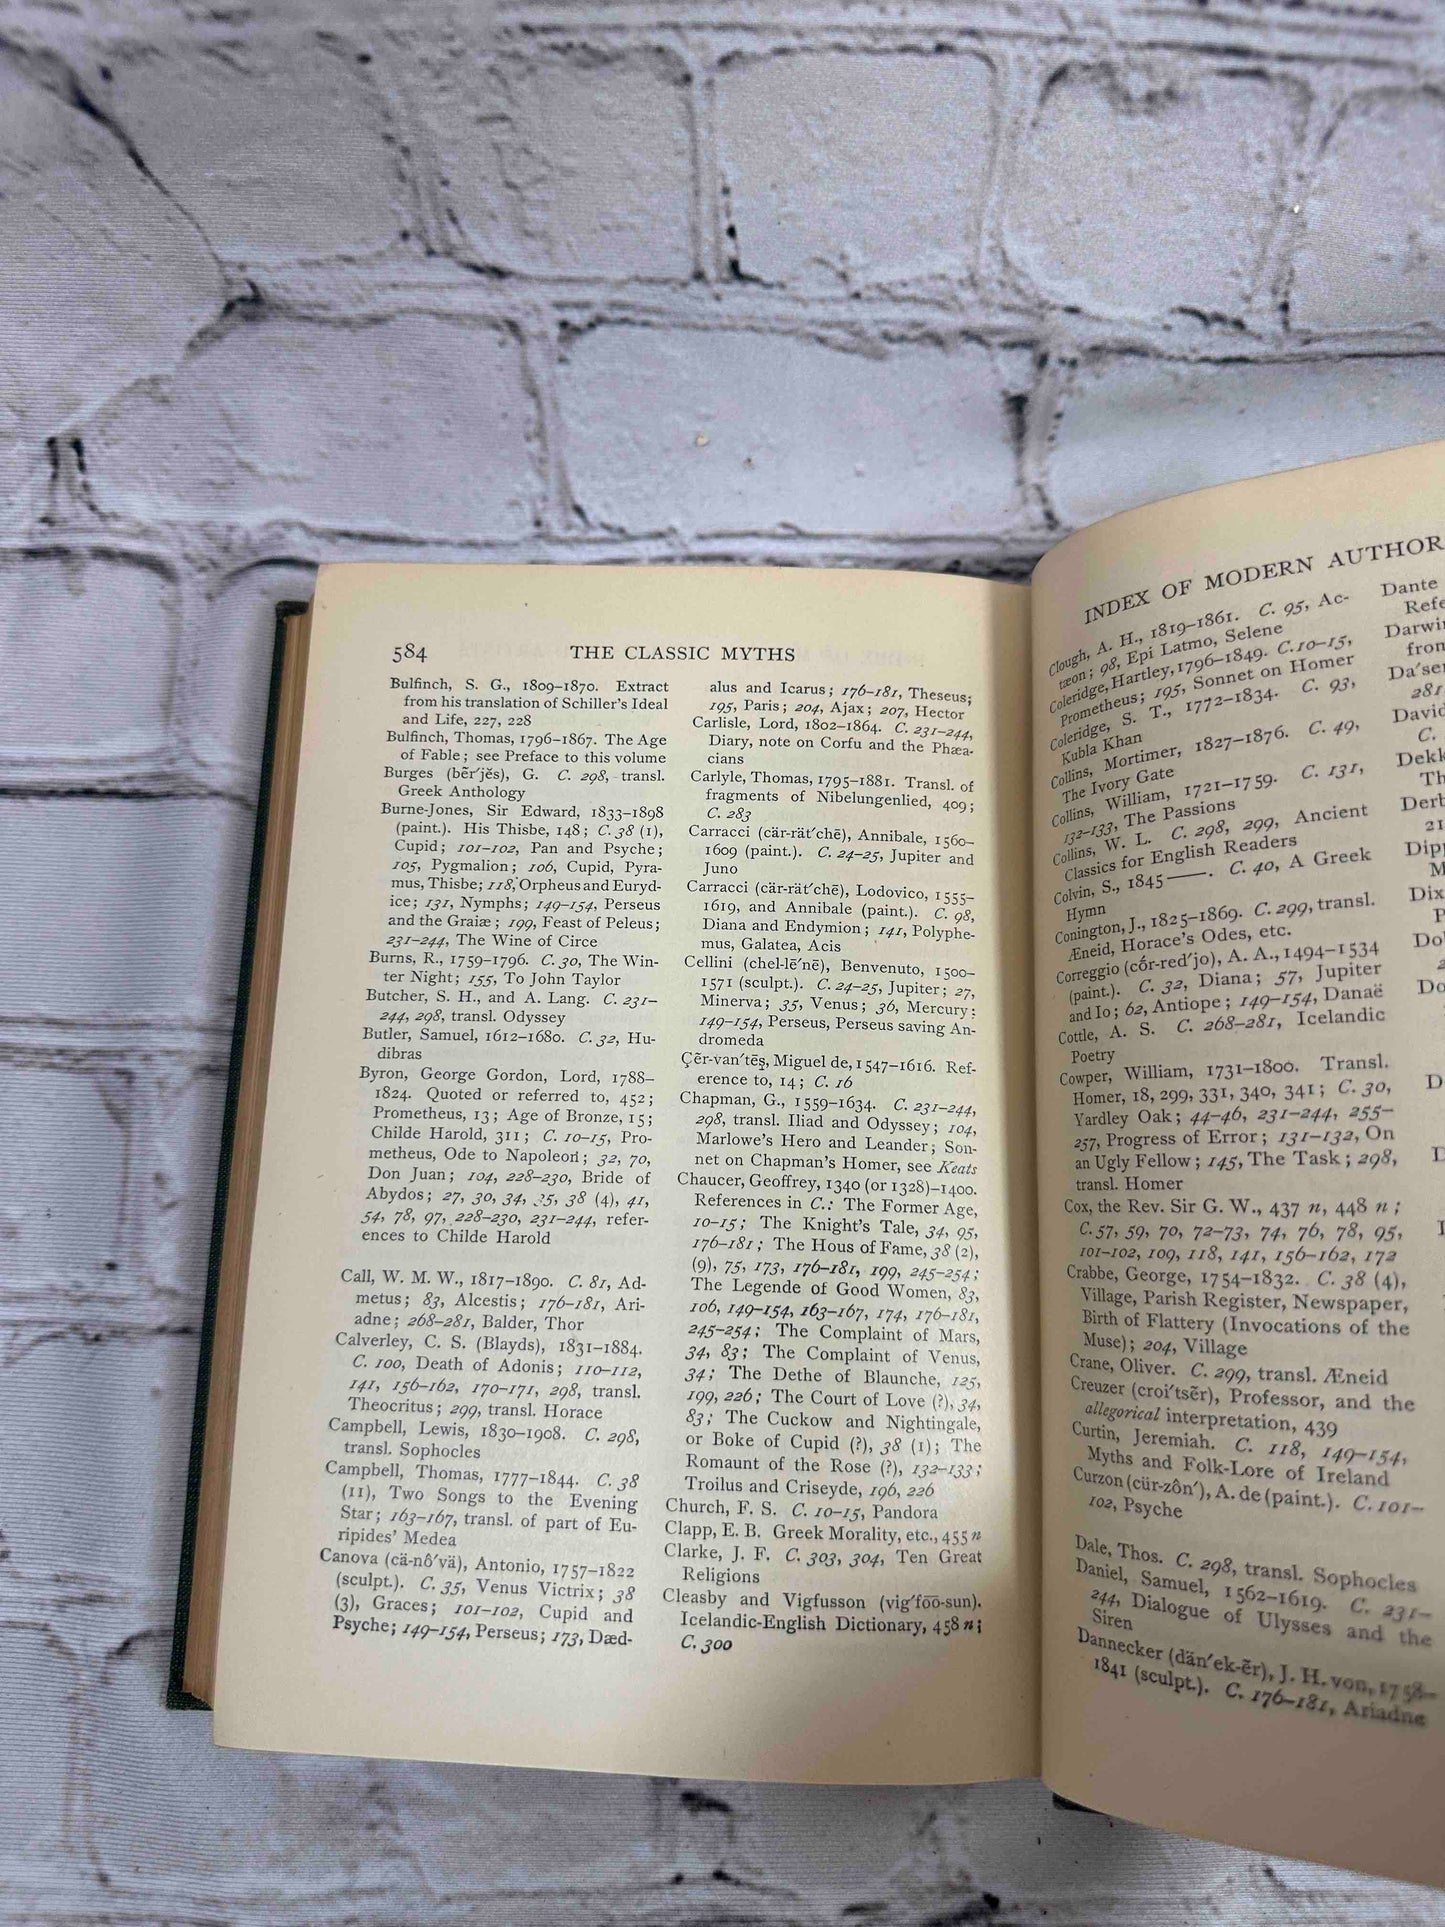 584 THE CLASSIC MYTHS
Bulfinch, S. G., 1809–1870. Extract
from his translation of Schiller's Ideal
and Life, 227, 228
Bulfinch, Thomas, 1796–1867. The Age
of Fable; see Preface to this volume
Burges (bẽr′jĕs), G. C. 298, transl.
Greek Anthology
Burne-Jones, Sir Edward, 1833–1898
(paint.). His Thisbe, 148; C. 38 (1),
Cupid; 101–102, Pan and Psyche;
105, Pygmalion; 106, Cupid, Pyra-
mus, Thisbe; 118, Orpheus and Euryd-
ice; 131, Nymphs; 149–154, Perseus
and the Graiæ; 199, Feast of Peleus;
231–244, The Wine of Circe
Burns, R., 1759–1796. C. 30, The Win-
ter Night; 155, To John Taylor
Butcher, S. H., and A. Lang. C. 231–
244, 298, transl. Odyssey
Butler, Samuel, 1612–1680. C. 32, Hu-
dibras
Byron, George Gordon, Lord, 1788–
1824. Quoted or referred to, 452;
Prometheus, 13; Age of Bronze, 15;
Childe Harold, 311; C. 10–15, Pro-
metheus, Ode to Napoleon; 32, 70,
Don Juan; 104, 228–230, Bride of
Abydos; 27, 30, 34, 35, 38 (4), 41,
54, 78, 97, 228–230, 231–244, refer-
ences to Childe Harold
Call, W. M. W., 1817–1890. C. 81, Ad-
metus; 83, Alcestis; 176–181, Ari-
adne; 268–281, Balder, Thor
Calverley, C. S. (Blayds), 1831–1884.
C. 100, Death of Adonis; 110–112,
141, 156–162, 170–171, 298, transl.
Theocritus; 299, transl. Horace
Campbell, Lewis, 1830–1908. C. 298,
transl. Sophocles
Campbell, Thomas, 1777–1844. C. 38
(11), Two Songs to the Evening
Star; 163–167, transl. of part of Eu-
ripides' Medea
Canova (cä-nô′vä), Antonio, 1757–1822
(sculpt.). C. 35, Venus Victrix; 38
(3), Graces; 101–102, Cupid and
Psyche; 149–154, Perseus; 173, Dæd-
alus and Icarus; 176–181, Theseus;
195, Paris; 204, Ajax; 207, Hector
Carlisle, Lord, 1802–1864. C. 231–244,
Diary, note on Corfu and the Phæa-
cians
Carlyle, Thomas, 1795–1881. Transl. of
fragments of Nibelungenlied, 409;
C. 283
Carracci (cär-rät′chē), Annibale, 1560–
1609 (paint.). C. 24–25, Jupiter and
Juno
Carracci (cär-rät′chē), Lodovico, 1555–
1619, and Annibale (paint.). C. 98,
Diana and Endymion; 141, Polyphe-
mus, Galatea, Acis
Cellini (chel-lē′nē), Benvenuto, 1500–
1571 (sculpt.). C. 24–25, Jupiter; 27,
Minerva; 35, Venus; 36, Mercury;
149–154, Perseus, Perseus saving An-
dromeda
Çẽr-van′tĕş, Miguel de, 1547–1616. Ref-
erence to, 14; C. 16
Chapman, G., 1559–1634. C. 231–244,
298, transl. Iliad and Odyssey; 104,
Marlowe's Hero and Leander; Son-
net on Chapman's Homer, see Keats
Chaucer, Geoffrey, 1340 (or 1328)–1400.
References in C.: The Former Age,
10–15; The Knight's Tale, 34, 95,
176–181; The Hous of Fame, 38 (2),
(9), 75, 173, 176–181, 199, 245–254;
The Legende of Good Women, 83,
106, 149–154, 163–167, 174, 176–181,
245–254; The Complaint of Mars,
34, 83; The Complaint of Venus,
34; The Dethe of Blaunche, 125,
199, 226; The Court of Love (?), 34,
83; The Cuckow and Nightingale,
or Boke of Cupid (?), 38 (1); The
Romaunt of the Rose (?), 132–133;
Troilus and Criseyde, 196, 226
Church, F. S. C. 10–15, Pandora
Clapp, E. B. Greek Morality, etc., 455 n
Clarke, J. F. C. 303, 304, Ten Great
Religions
Cleasby and Vigfusson (vig′fo͞o-sun).
Icelandic-English Dictionary, 458 n;
C. 300
INDEX OF MODERN AUTHOR
Clough, A. H., 1819–1861. C. 95, Ac-
tæon; 98, Epi Latmo, Selene
Coleridge, Hartley, 1796–1849. C. 10–15,
Prometheus; 195, Sonnet on Homer
Coleridge, S. T., 1772–1834. C. 93,
Kubla Khan
Collins, Mortimer, 1827–1876. C. 49,
The Ivory Gate
Collins, William, 1721–1759. C. 131,
132–133, The Passions
Collins, W. L. C. 298, 299, Ancient
Classics for English Readers
Colvin, S., 1845——. C. 40, A Greek
Hymn
Conington, J., 1825–1869. C. 299, transl.
Æneid, Horace's Odes, etc.
Correggio (cŏr-red′jo), A. A., 1494–1534
(paint.). C. 32, Diana; 57, Jupiter
and Io; 62, Antiope; 149–154, Danaë
Cottle, A. S. C. 268–281, Icelandic
Poetry
Cowper, William, 1731–1800. Transl.
Homer, 18, 299, 331, 340, 341; C. 30,
Yardley Oak; 44–46, 231–244, 255–
257, Progress of Error; 131–132, On
an Ugly Fellow; 145, The Task; 298,
transl. Homer
Cox, the Rev. Sir G. W., 437 n, 448 n;
C. 57, 59, 70, 72–73, 74, 76, 78, 95,
101–102, 109, 118, 141, 156–162, 172
Crabbe, George, 1754–1832. C. 38 (4),
Village, Parish Register, Newspaper,
Birth of Flattery (Invocations of the
Muse); 204, Village
Crane, Oliver. C. 299, transl. Æneid
Creuzer (croi′tsẽr), Professor, and the
allegorical interpretation, 439
Curtin, Jeremiah. C. 118, 149–154,
Myths and Folk-Lore of Ireland
Curzon (cür-zôn′), A. de (paint.). C. 101–
102, Psyche
Dale, Thos. C. 298, transl. Sophocles
Daniel, Samuel, 1562–1619. C. 231–
244, Dialogue of Ulysses and the
Siren
Dannecker (dän′ek-ẽr), J. H. von, 1758–
1841 (sculpt.). C. 176–181, Ariadne
Dante
Refe
Darwi
from
Da′ser
281
David
C.
Dekk
Th
Derb
21
Dipp
M
Dix
P
Dol
2
Do